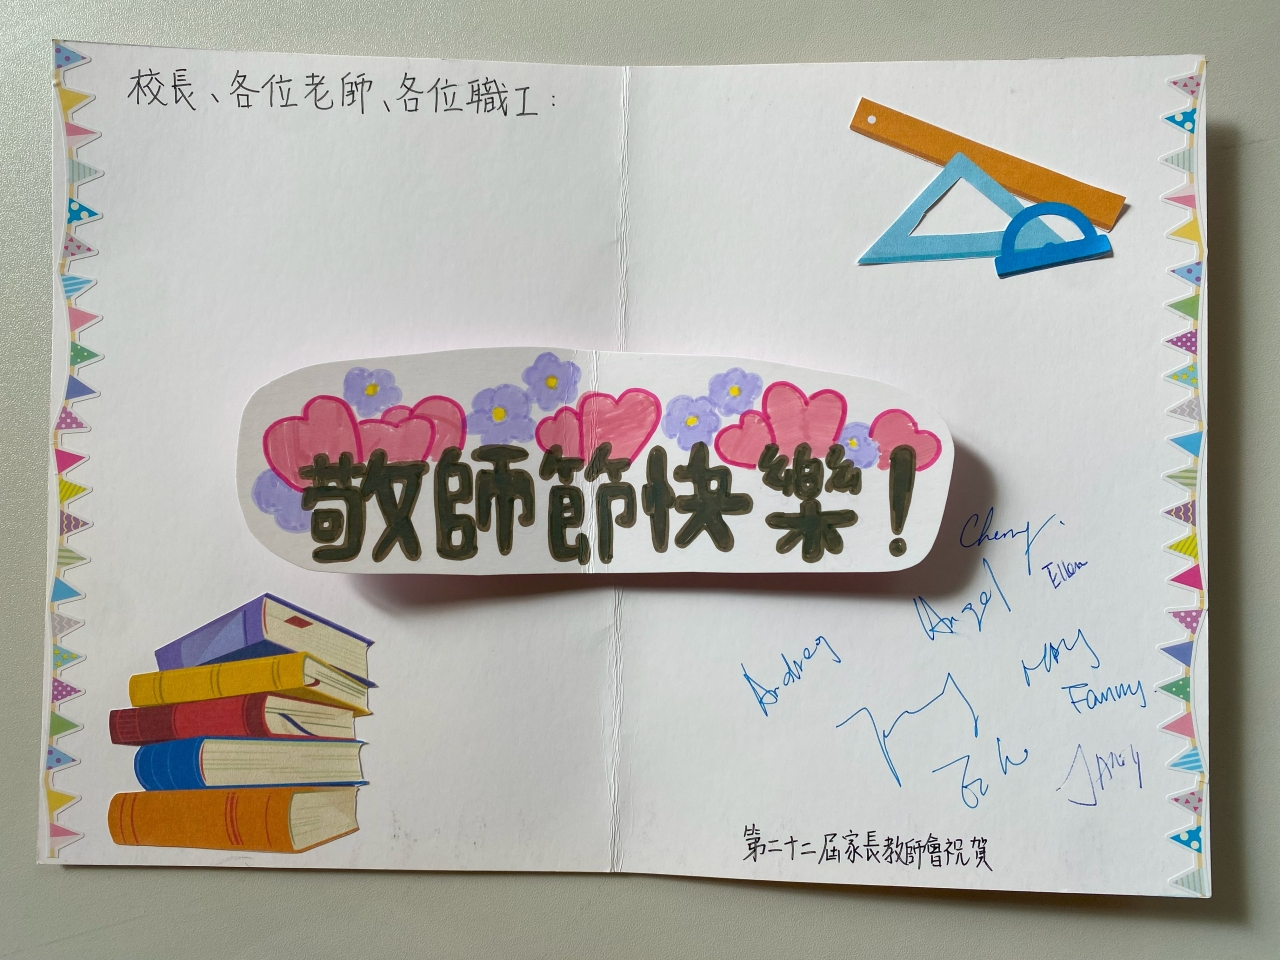 校長、各位老師、各位職工：
敬師節快樂！
Cherry.
Ellen
Angel
Audrey
May
Fanny
第二十二屆家長教師會祝賀